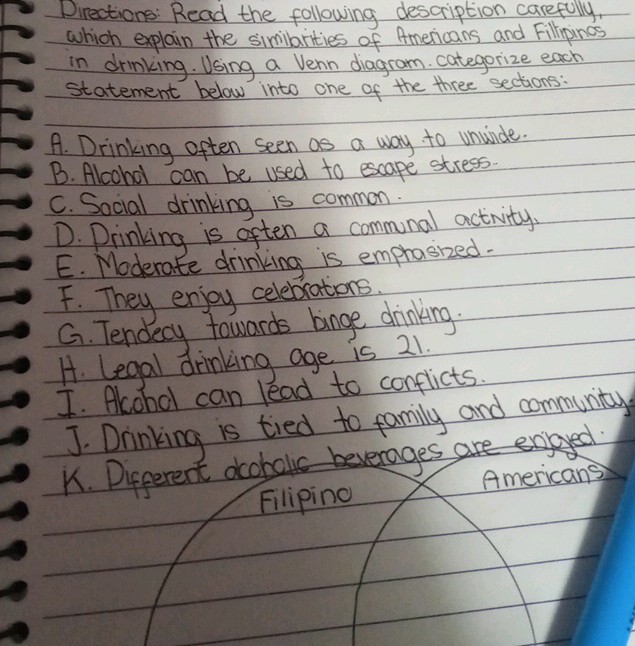 Directions: Read the following description carefully,
which explain the similarities of Americans and Filipinos
in drinking. Using a Venn diagram. categorize each
statement below into one of the three sections:
A. Drinking often seen as a way to unwide.
B. Alcohol can be used to escape stress.
C. Social drinking is common.
D. Drinking is often a communal activity.
E. Moderate drinking is emphasized.
F. They enjoy celebrations.
G. Tendecy towards binge drinking.
H. Legal drinking age is 21.
I. Alcohol can lead to conflicts.
J. Drinking is tied to family and community.
K. Different alcoholic beverages are enjoyed.
Filipino
Americans